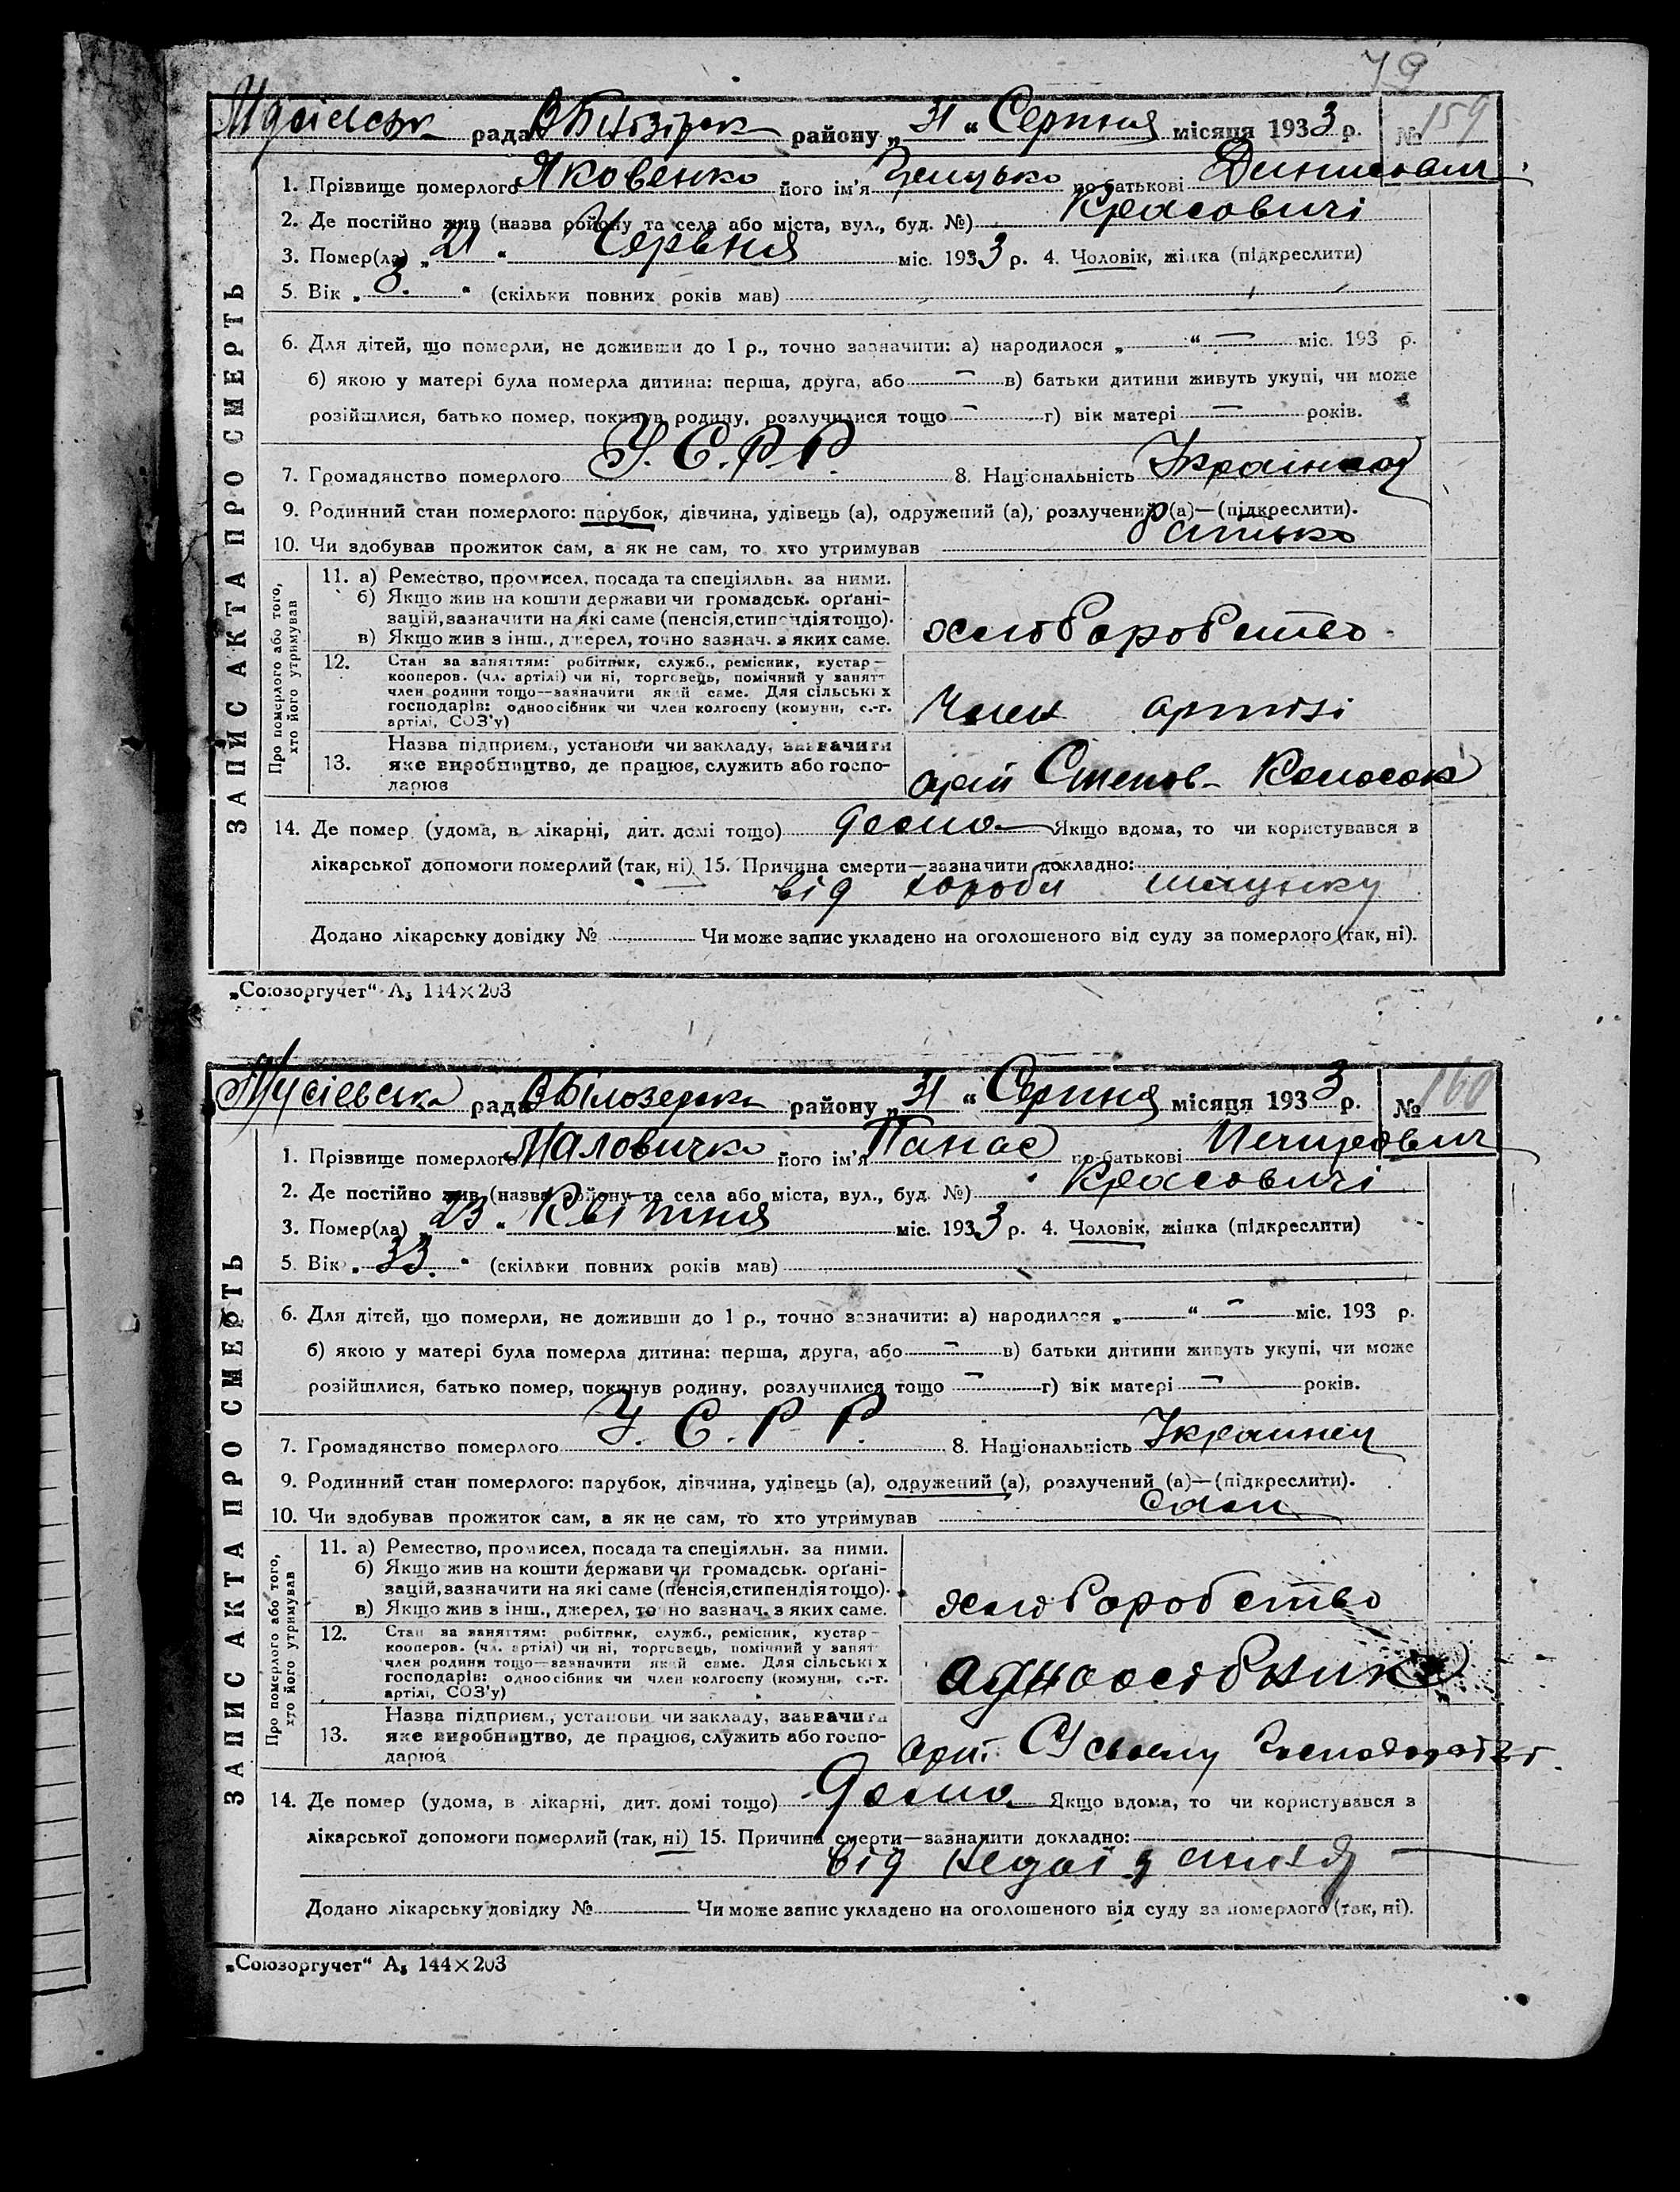 79
Мусіевськ рада В Білозірск району „31“ Серпня місяця 1933 р. № 159
1. Прізвище померлого Яковенко його ім'я Грицько по-батькові Денисович
2. Де постійно жив (назва району та села або міста, вул., буд. №) Красовичі
3. Помер(ла) „21“ Червня міс. 1933 р. 4. Чоловік, жінка (підкреслити)
5. Вік „3.“ (скільки повних років мав)
6. Для дітей, що померли, не доживши до 1 р., точно зазначити: а) народилося „ “ — міс. 193 р.
б) якою у матері була померла дитина: перша, друга, або — в) батьки дитини живуть укупі, чи може
розійшлися, батько помер, покинув родину, розлучилися тощо — г) вік матері — років.
7. Громадянство померлого У.С.Р.Р. 8. Національність
9. Родинний стан померлого: парубок, дівчина, удівець (а), одружений (а), розлучений (а)—(підкреслити).
10. Чи здобував прожиток сам, а як не сам, то хто утримував батько
ЗАПИС АКТА ПРО СМЕРТЬ
Про померлого або того,
хто його утримував
11. а) Ремество, промисел, посада та спеціяльн. за ними.
б) Якщо жив на кошти держави чи громадськ. орґані-
зацій, зазначити на які саме (пенсія, стипендія тощо).
в) Якщо жив з інш., джерел, точно зазнач. з яких саме.
хліборобство
12. Стан за заняттям: робітник, служб., ремісник, кустар—
кооперов. (чл. артілі) чи ні, торговець, помічний у занятт
член родини тощо—зазначити який саме. Для сільських
господарів: одноосібник чи член колгоспу (комуни, с.-г.
артілі, СОЗ'у)
Член артілі
13. Назва підприєм., установи чи закладу, зазначити
яке виробництво, де працює, служить або госпо-
дарює
арті Степов- Колосок
14. Де помер (удома, в лікарні, дит. домі тощо) дома Якщо вдома, то чи користувався з
лікарської допомоги померлий (так, ні) 15. Причина смерти—зазначити докладно:
від хороби шлунку
Додано лікарську довідку № Чи може запис укладено на оголошеного від суду за померлого (так, ні).
„Союзоргучет“ А₅ 144×203
Мусіевська рада В Білозерска району „31“ Серпня місяця 1933 р. № 160
1. Прізвище померлого Маловичко його ім'я Панас по-батькові
2. Де постійно жив (назва району та села або міста, вул., буд. №) Красовичі
3. Помер(ла) „23“ Квітня міс. 1933 р. 4. Чоловік, жінка (підкреслити)
5. Вік „33.“ (скільки повних років мав)
6. Для дітей, що померли, не доживши до 1 р., точно зазначити: а) народилося „ “ — міс. 193 р.
б) якою у матері була померла дитина: перша, друга, або — в) батьки дитини живуть укупі, чи може
розійшлися, батько помер, покинув родину, розлучилися тощо — г) вік матері — років.
7. Громадянство померлого У.С.Р.Р. 8. Національність Украинец
9. Родинний стан померлого: парубок, дівчина, удівець (а), одружений (а), розлучений (а)—(підкреслити).
10. Чи здобував прожиток сам, а як не сам, то хто утримував сам
ЗАПИС АКТА ПРО СМЕРТЬ
Про померлого або того,
хто його утримував
11. а) Ремество, промисел, посада та спеціяльн. за ними.
б) Якщо жив на кошти держави чи громадськ. орґані-
зацій, зазначити на які саме (пенсія, стипендія тощо).
в) Якщо жив з інш., джерел, точно зазнач. з яких саме.
хліборобство
12. Стан за заняттям: робітник, служб., ремісник, кустар—
кооперов. (чл. артілі) чи ні, торговець, помічний у занят
член родини тощо—зазначити який саме. Для сільських
господарів: одноосібник чи член колгоспу (комуни, с.-г.
артілі, СОЗ'у)
одноосібник
13. Назва підприєм., установи чи закладу, зазначити
яке виробництво, де працює, служить або госпо-
дарює
арт. У своєму
14. Де помер (удома, в лікарні, дит. домі тощо) Дома Якщо вдома, то чи користувався з
лікарської допомоги померлий (так, ні) 15. Причина смерти—зазначити докладно:
від недоїдання
Додано лікарську довідку № Чи може запис укладено на оголошеного від суду за померлого (так, ні).
„Союзоргучет“ А₅ 144×203